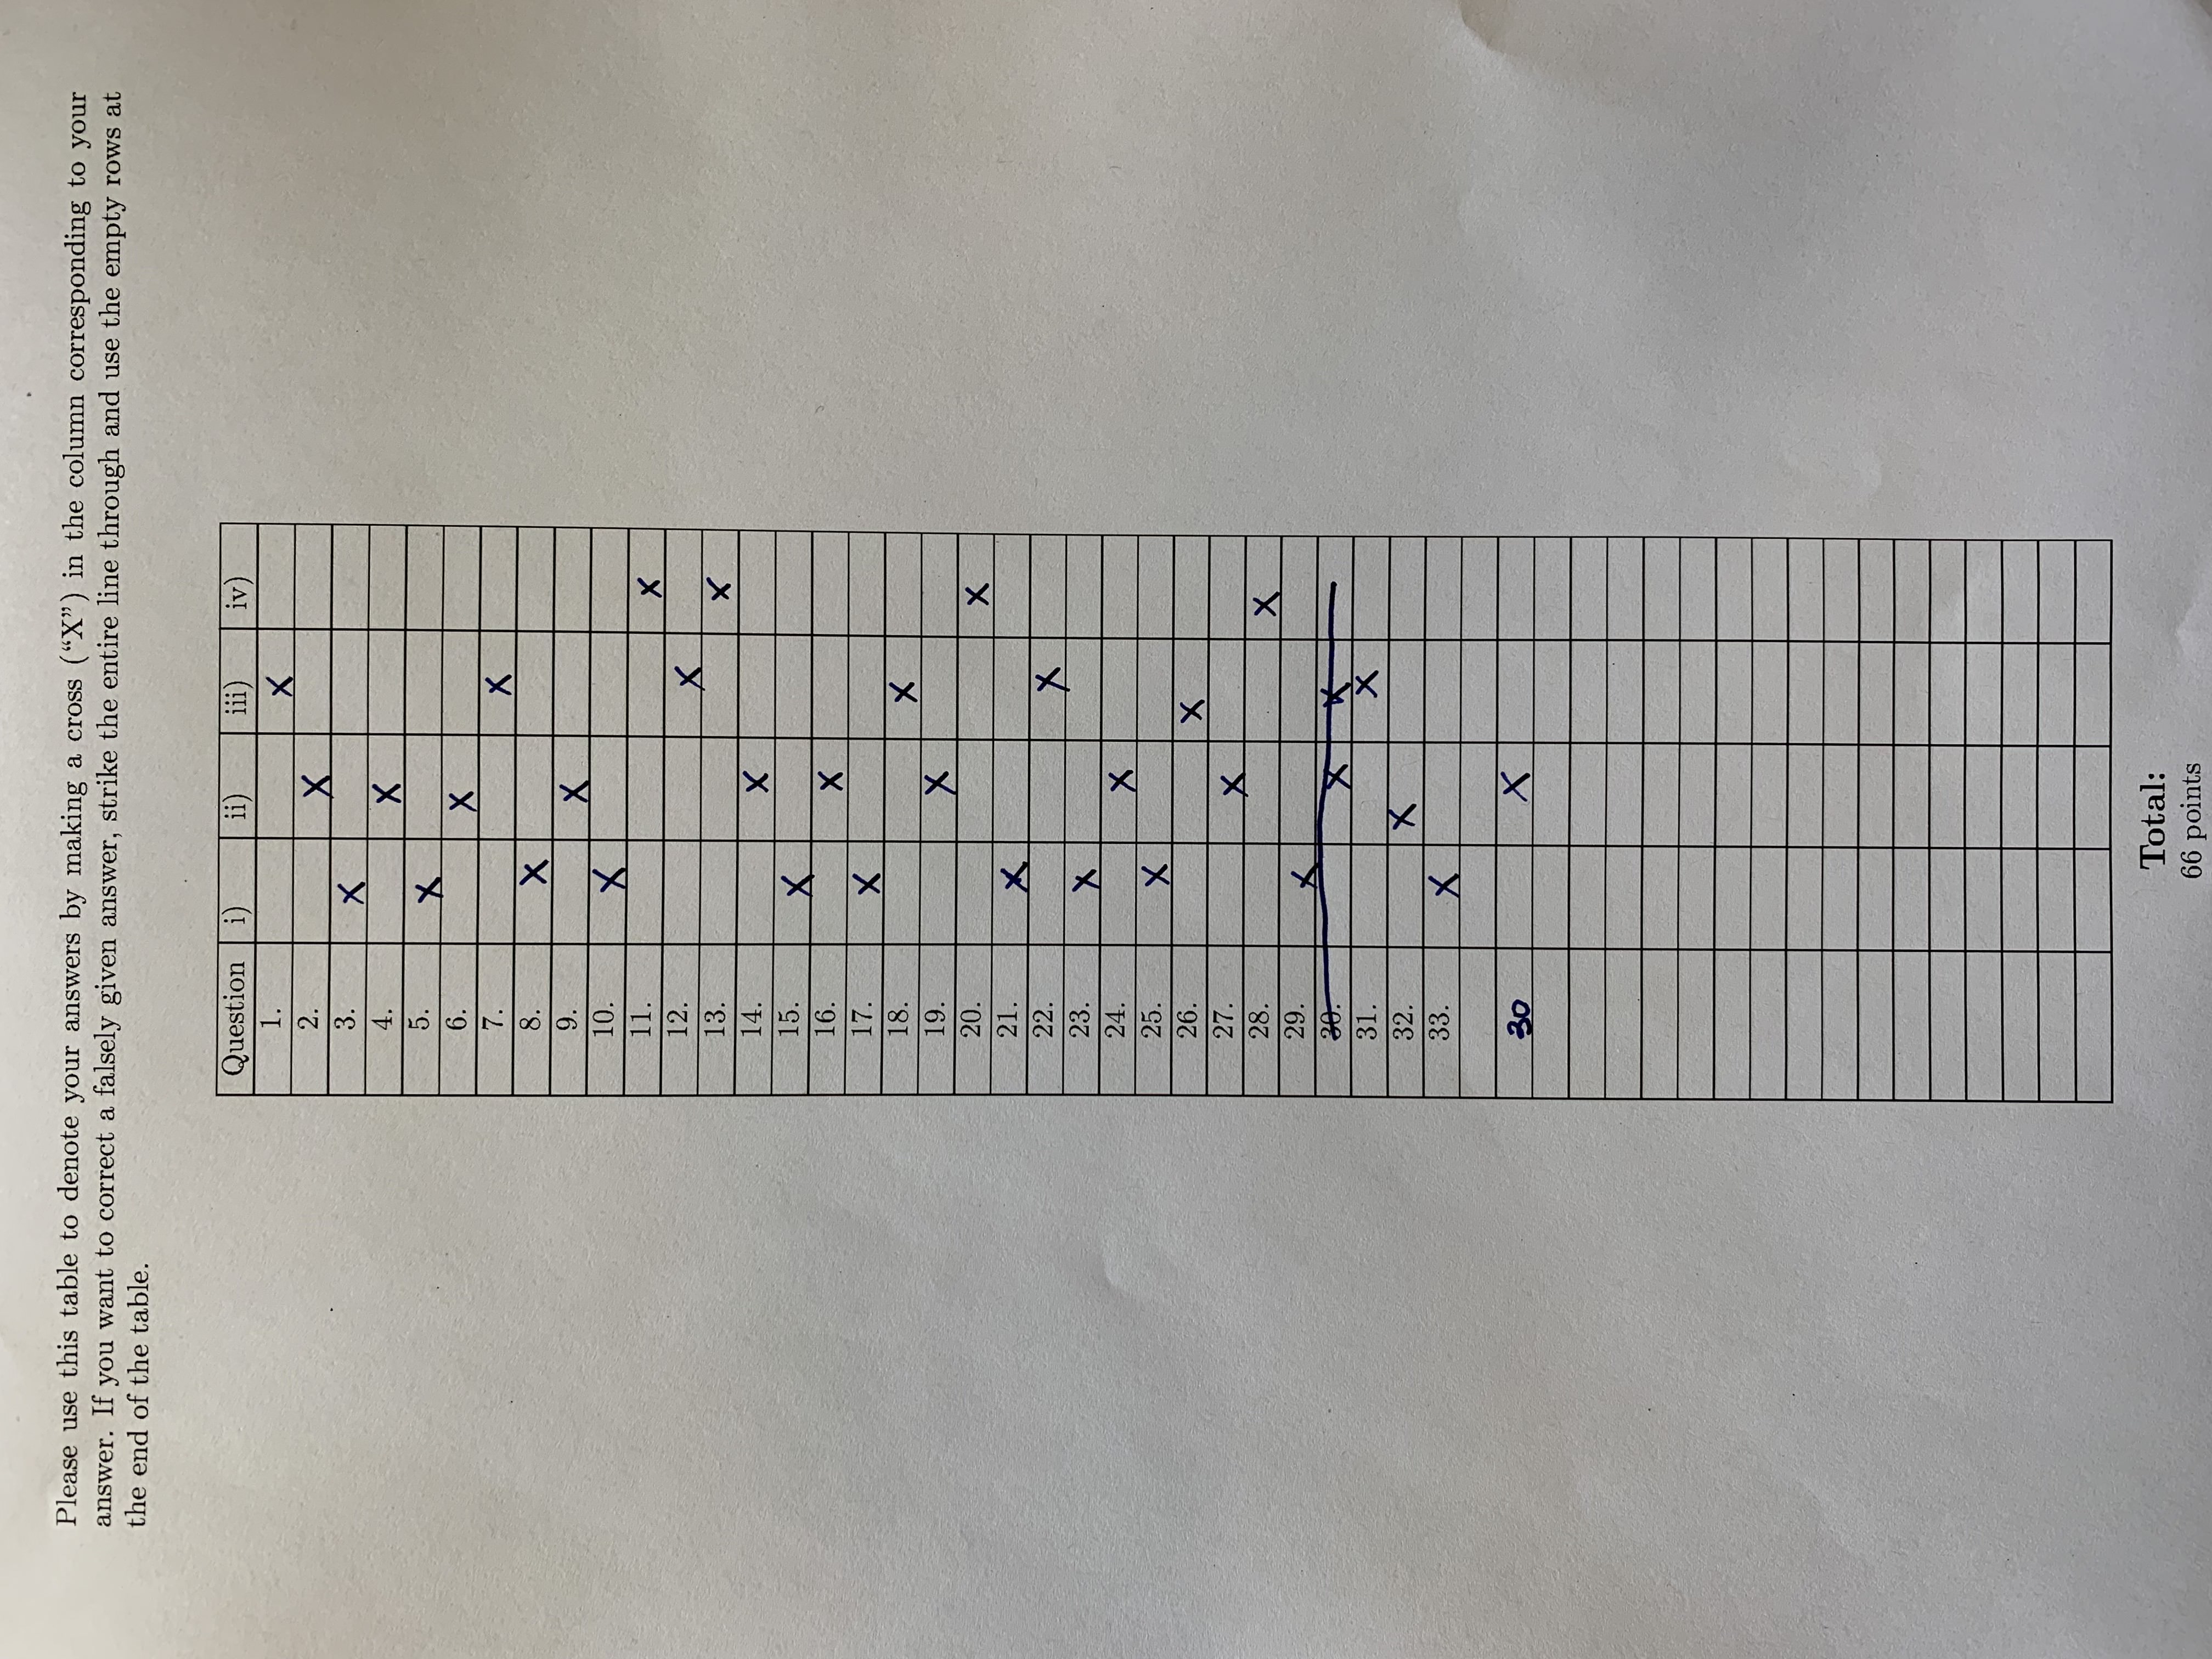 Please use this table to denote your answers by making a cross (“X”) in the column corresponding to your
answer. If you want to correct a falsely given answer, strike the entire line through and use the empty rows at
the end of the table.
Question i) ii) iii) iv)
1. X
2. X
3. X
4. X
5. X
6. X
7. X
8. X
9. X
10. X
11. X
12. X
13. X
14. X
15. X
16. X
17. X
18. X
19. X
20. X
21. X
22. X
23. X
24. X
25. X
26. X
27. X
28. X
29. X
30. X X
31. X
32. X
33. X
30 X
Total:
66 points